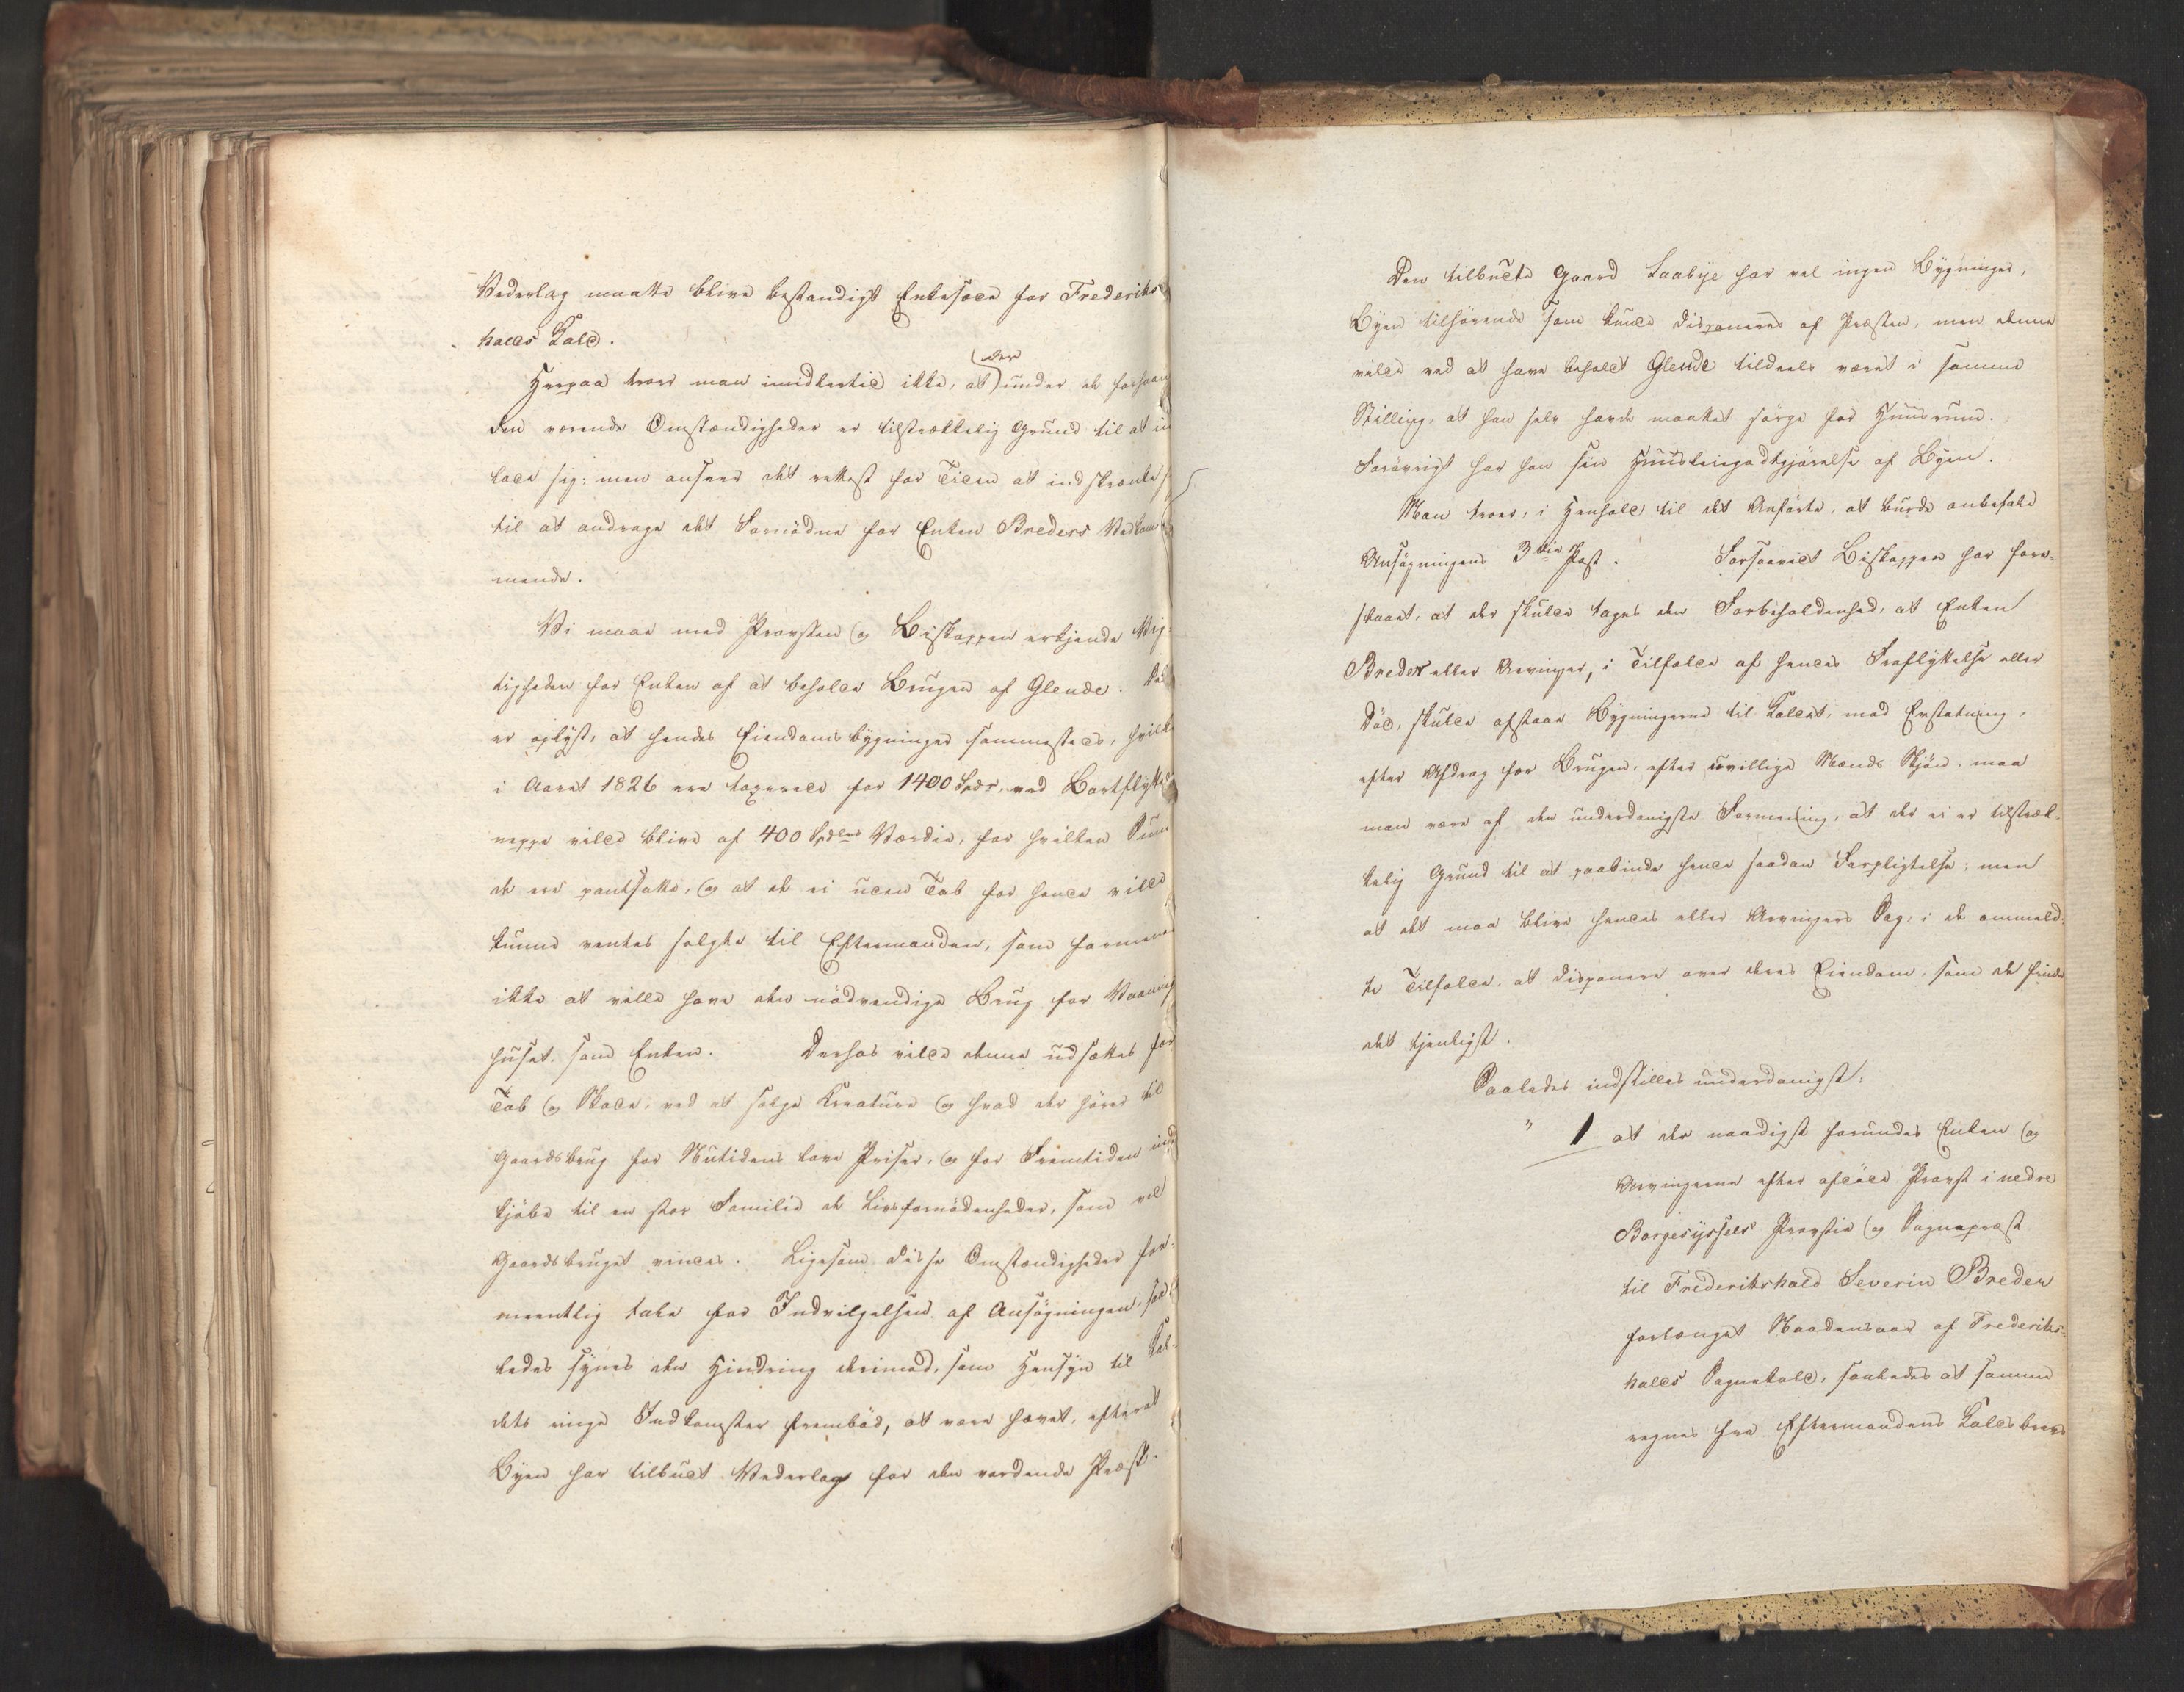 Vederlag maatte blive bestandigt Enkesæde for Frederiks-
halds Kald.
Herpaa troer man imidlertid ikke, at der under de forhaan-
den værende Omstændigheder er tilstrækkelig Grund til at ind-
lade sig; men ansees det rettest for Tiden at indskrænke sig
til at andrage det Fornödne for Enken Breders Vedkom-
mende.
Vi maae med Provsten og Biskoppen erkjende Vig-
tigheden for Enken af at beholde Brugen af Glende. Det
er oplyst, at hendes Eiendoms bygninger sammesteds, hvilke
i Aaret 1826 ere taxerede for 1400 Spdr, ved Bortflyttelse
neppe vilde blive af 400 Spdlrs Værdie, for hvilken Sum
de ere pantsatte, og at de ei uden Tab for hende vilde
kunne ventes solgte til Eftermanden, som formenes
ikke at ville have den nödvendige Brug for Vaanings-
huset som Enken. Derhos vilde denne udsættes for
Tab og Skade, ved at sælge Kreature og hvad der hörer til
Gaardsbrug for Nutidens lave Priser, og for Fremtiden ind-
kjöbe til en stor Familie de Livsfornödenheder, som ved
Gaardsbruget vindes. Ligesom disse Omstændigheder for-
meentlig tale for Indvilgelsen af Ansögningen, saa-
ledes synes den Hindring derimod, som Hensyn til Kal-
dets ringe Indkomster frembød, at være hævet, efterat
Byen har tilbudt Vederlag for den vordende Præst.
Den tilbudte Gaard Laabye har vel ingen Bygninger,
Byen tilhörende som kunde disponeres af Præsten, men denne
vilde ved at have beholdt Glende tildeels været i samme
Stilling, at han selv havde maattet sörge for Huusrum.
Forövrigt har han sin Huusleiegodtgjörelse af Byen.
Man troer, i Henhold til det Anförte, at burde anbefale
Ansögningens 3die Post. Forsaavidt Biskoppen har fore-
slaaet, at der skulde tages den Forbeholdenhed, at Enken
Breder eller Arvinger, i Tilfælde af hendes Fraflyttelse eller
Död, skulde afstaae Bygningerne til Kaldet, mod Erstatning,
efter Afdrag for Brugen, efter uvillige Mænds Skjön, maa
man være af den underdanigste Formening, at der ei er tilstræk-
kelig Grund til at paabinde hende saadan Forpligtelse; men
at det maa blive hendes eller Arvingers Sag, i de ommeld-
te Tilfælde, at disponere over deres Eiendom, som de finde
det tjenligst.
Saaledes indstilles underdanigst:
" 1 at der naadigst forundes Enken og
Arvingerne efter afdöde Provst i nedre
Borgesyssels Provstie og Sognepræst
til Frederikshald Severin Breder
forlænget Naadensaar af Frederiks-
halds Sognekald, saaledes at samme
regnes fra Eftermandens Kaldsbrevs